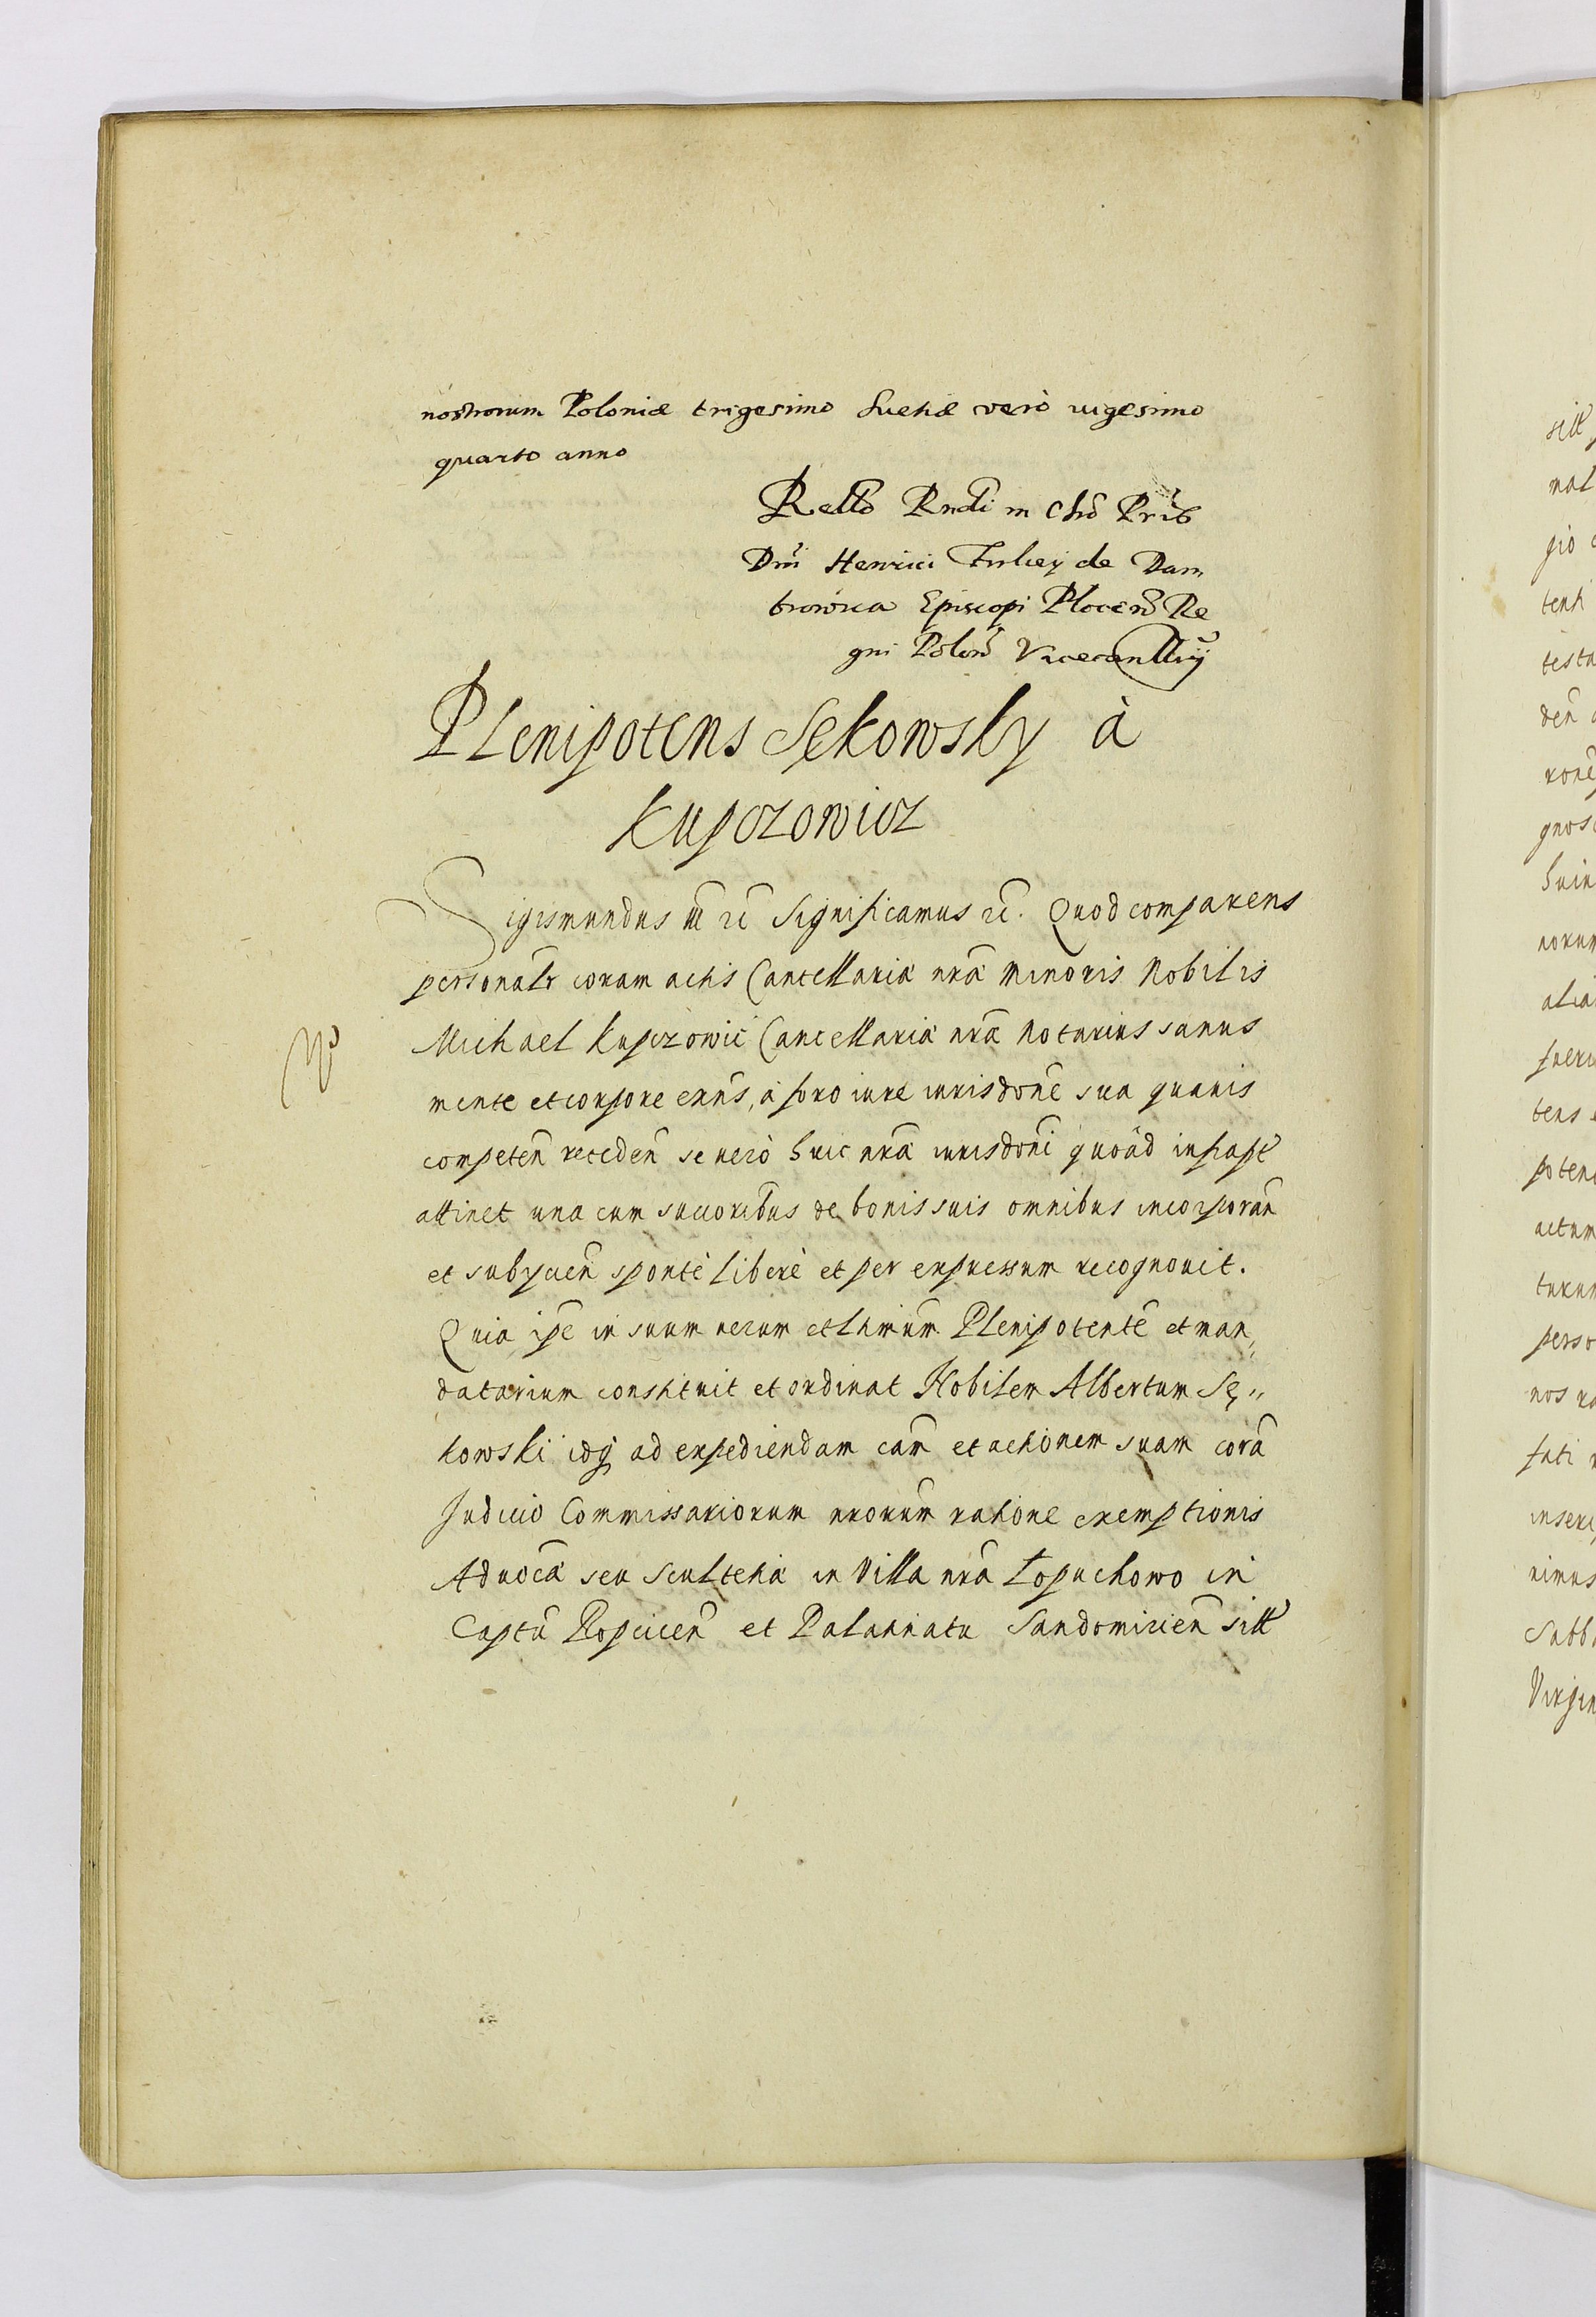 nostrorum Poloniæ trigesimo Suetiæ verò uigesimo
quarto anno
Rello Rndi in Chro Pris
Dni Henrici Firley de Dam
browica Episcopi Plocen Re
gni Polon Vicecancllrij
Plenipotens Sękowsky à
Kupczowicz
Sigismundus III rc Significamus rc. Quod comparens
personalr coram actis Cancellariæ nræ Minoris Nobilis
Michael Kupczowic Cancellariæ nræ Notarius sanus
mente et corpore exns, à foro iure iurisdone sua quauis
competen receden se uerò huic nræ iurisdoni quoad infrascr
attinet una cum succoribus de bonis suis omnibus incorporan
et subycien spontè liberè et per expressum recognouit.
Quia ipe in suum uerum et lthimum Plenipotente et man„
datarium constituit et ordinat Nobilem Albertum Sę„
kowski idq ad expediendam cam et actionem suam cora
Judicio Commissariorum nrorum ratione exemptionis
Aduocæ seu Scultetiæ in Villa nra Łopuchowo in
Captu Ropcicen et Palatinatu Sandomirien sitt
sitt
nal
gio
tent
testa
den
rone
gnos
huin
norum
alia
fueri
tens
poten
actum
turum
perso
nos
fati
inseri
nimus
Sabb
Virgin